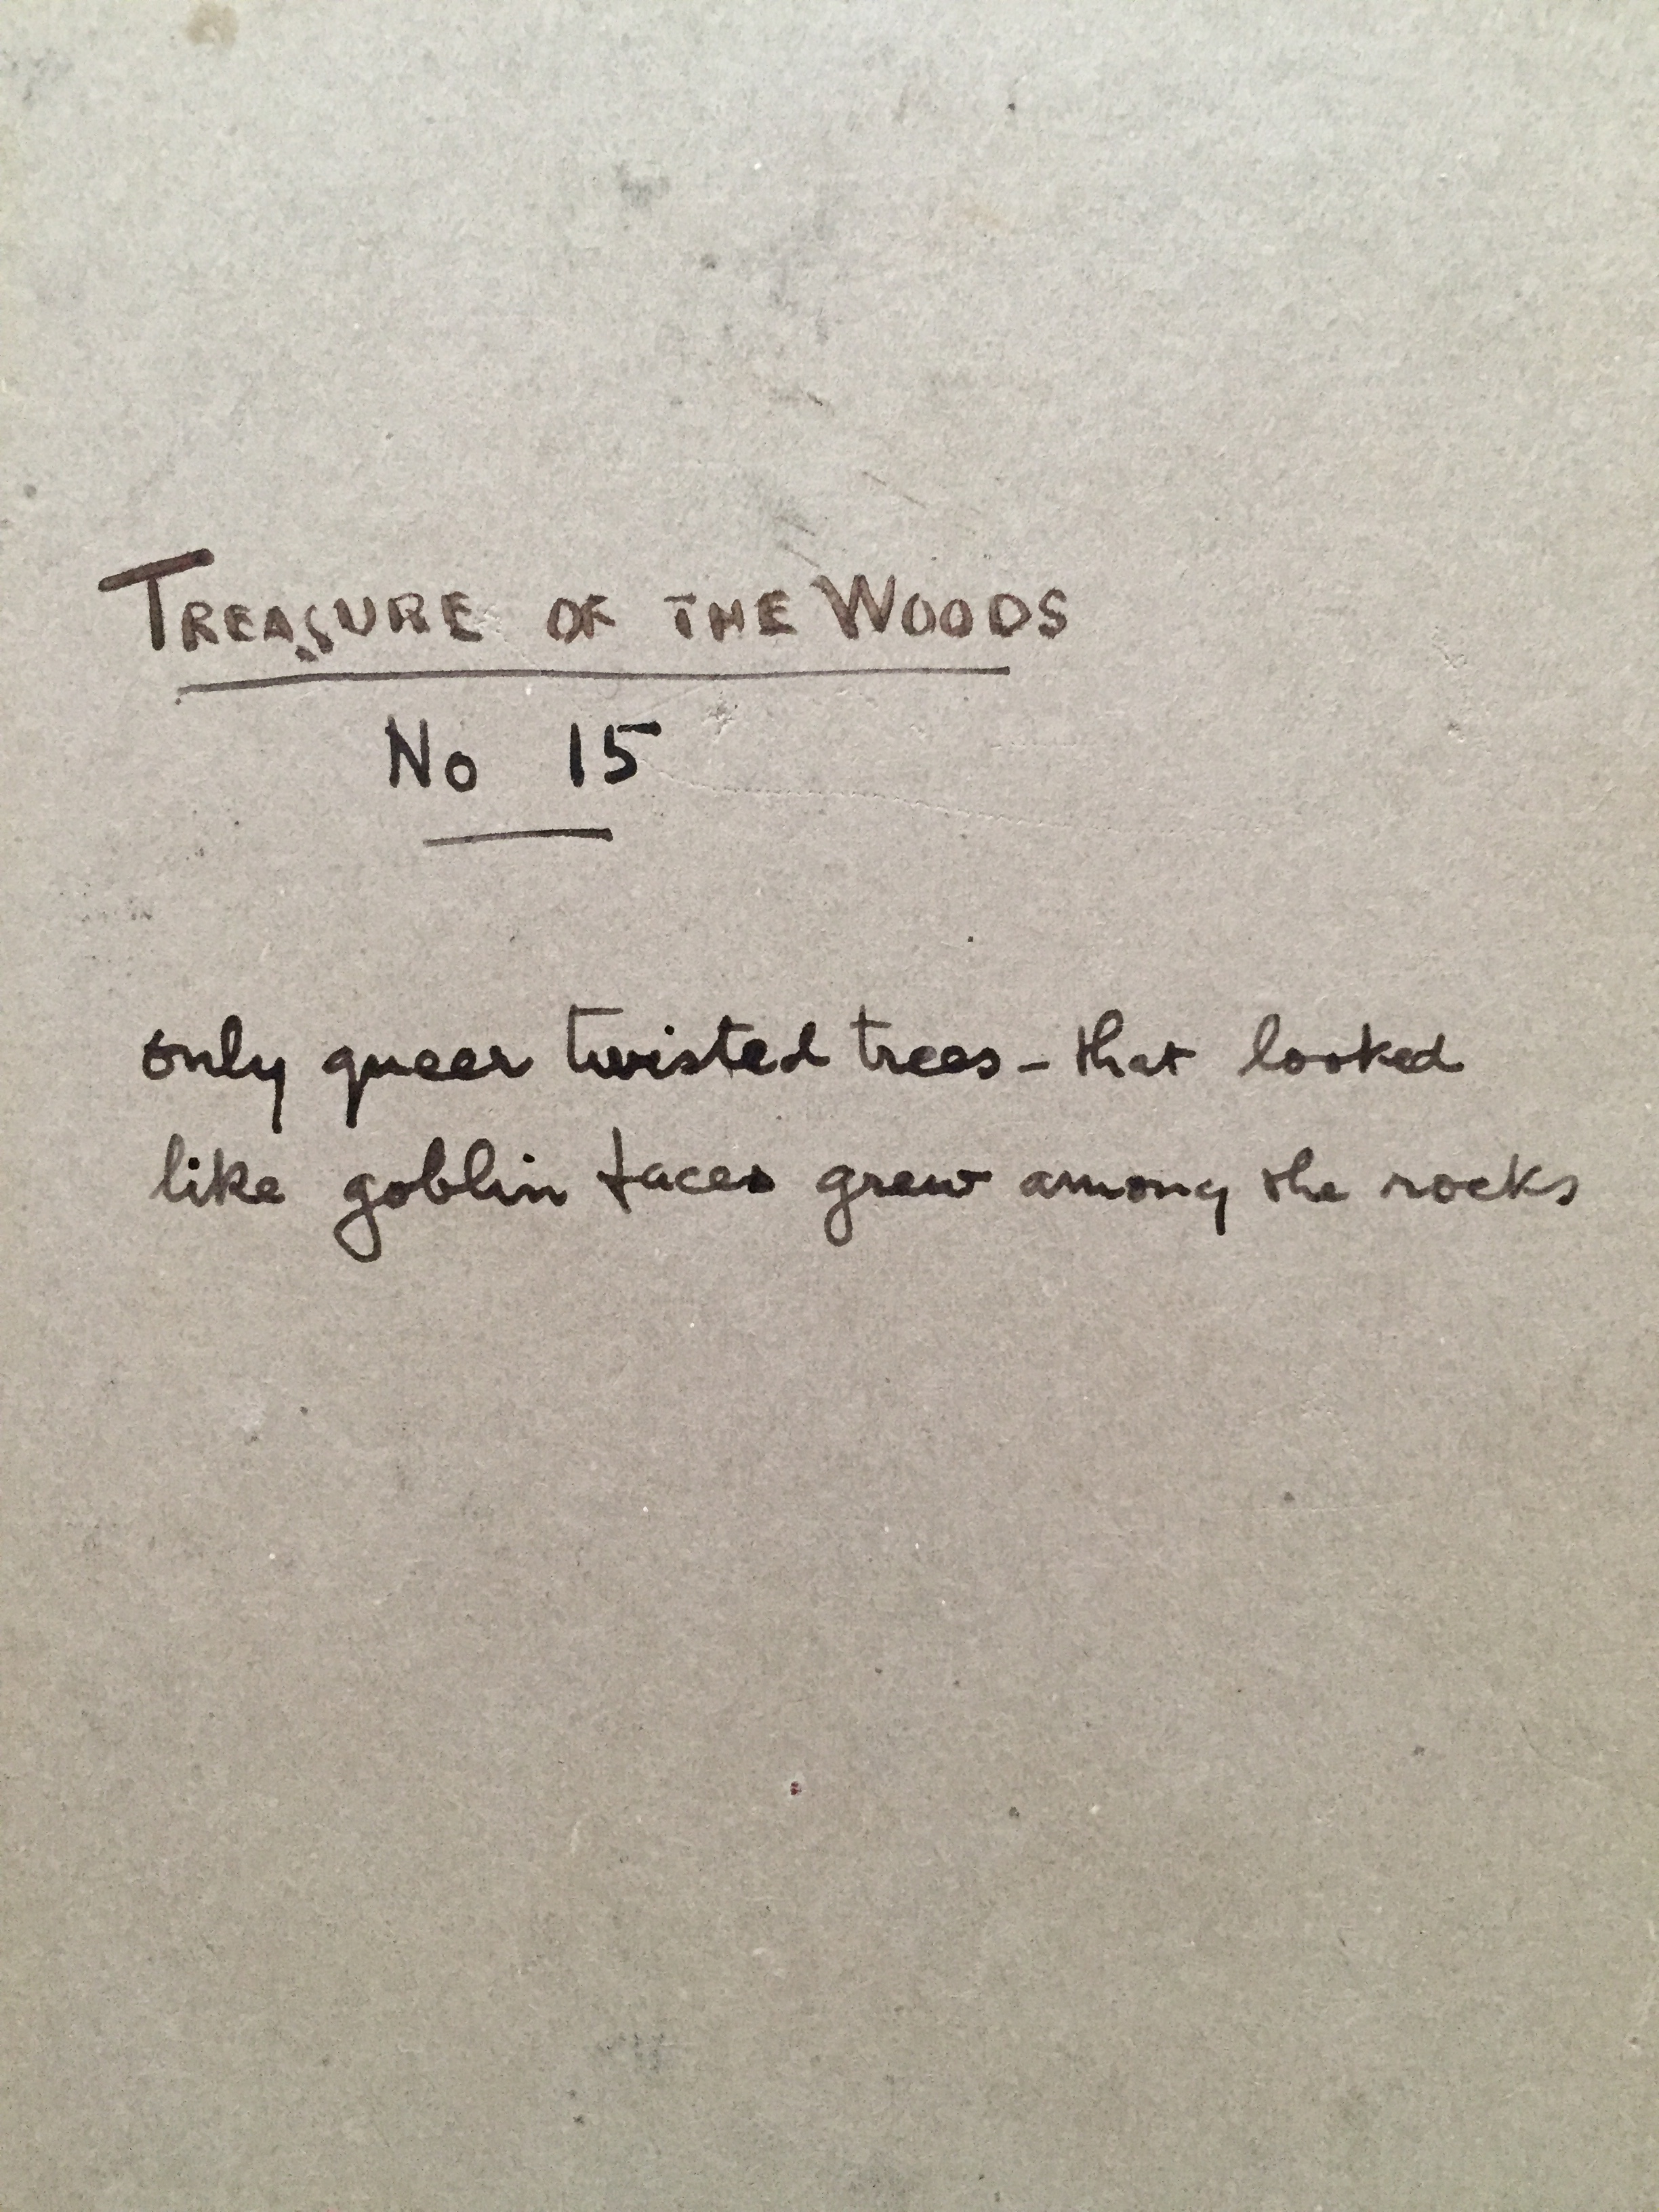 TREASURE OF THE WOODS
No 15
only queer twisted trees - that looked
like goblin faces grew among the rocks